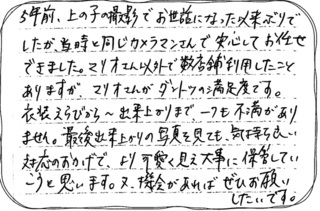 5年前、上の子の撮影でお世話になった以来ぶりで
したが、当時と同じカメラマンさんで安心してお任せ
できました。マリオさん以外で数店舗利用したこと
ありますが、マリオさんがダントツの満足度です。
衣装えらびから〜出来上がりまで一つも不満があり
ません。最後出来上がりの写真を見ても、気持ち良い
対応のおかげで、より可愛く見え大事に保管してい
こうと思います。又、機会があればぜひお願い
したいです。